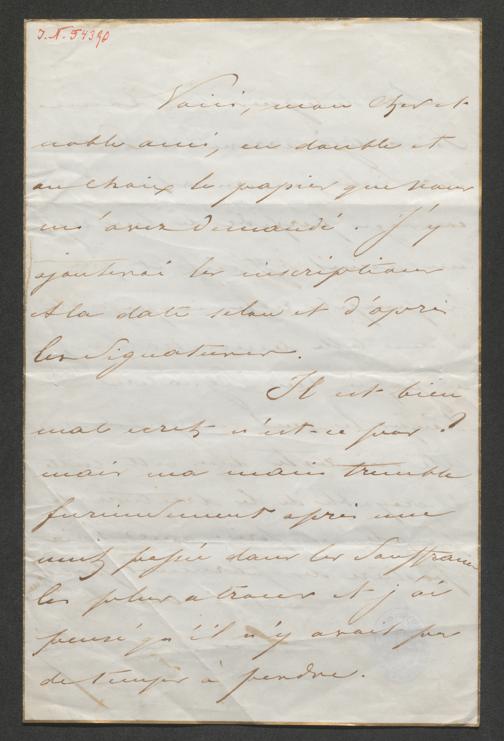 J.N. 54390
Voici, mon cher et
noble ami, en double et
au choix le papier que vous
m'avez demandé. J'y
ajouterai les inscriptions
et la date selon et d'après
les Signatures.
Il est bien
mal ecrit n'est-ce pas ?
mais ma main tremble
furieusement après une
nuit passée dans les Souffrances
les plus atroces et j'ai
pensé qu'il n'y avait pas
de temps à perdre.